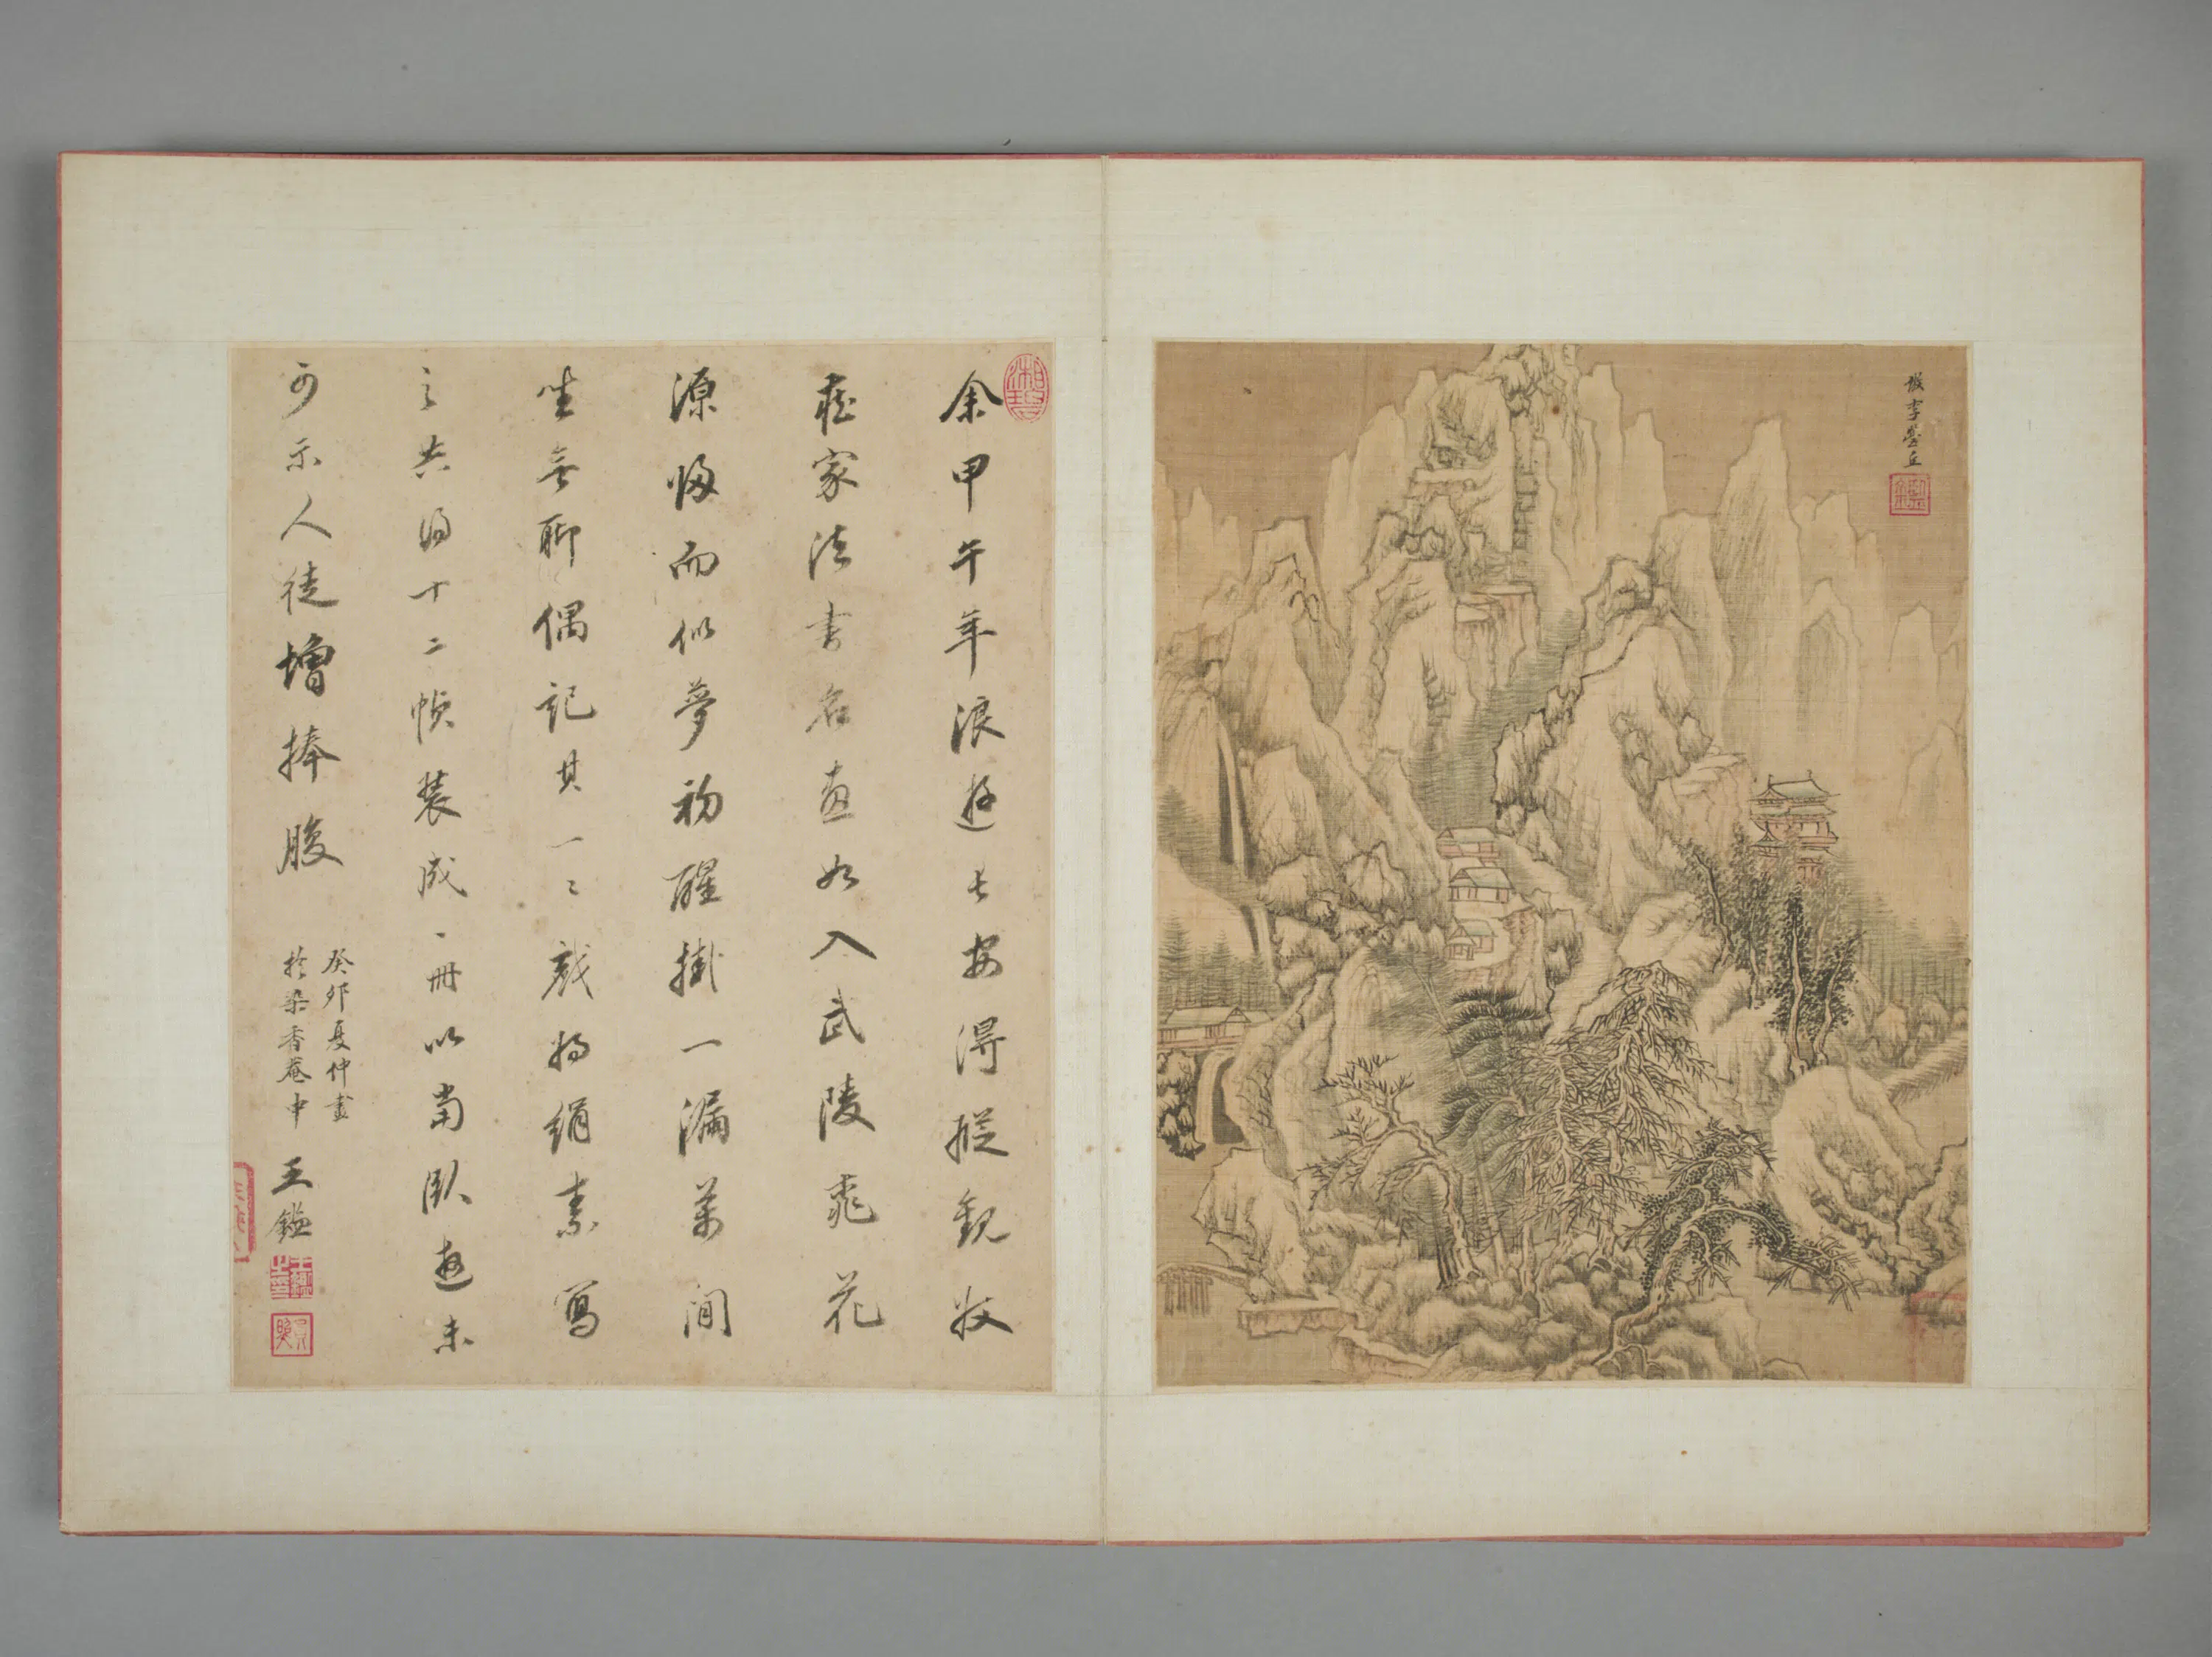 擬李營丘
余甲午年浪遊長安得縱觀收
藏家法書名畫如入武陵桃花
源歸而似夢初醒掛一漏萬閒
坐無聊偶記其一二戲將絹素寫
之共得十二幀裝成一冊以當臥遊未
可示人徒增捧腹
癸卯夏仲畫
於染香菴中
王鑑
湘碧
王鑑之印
員照